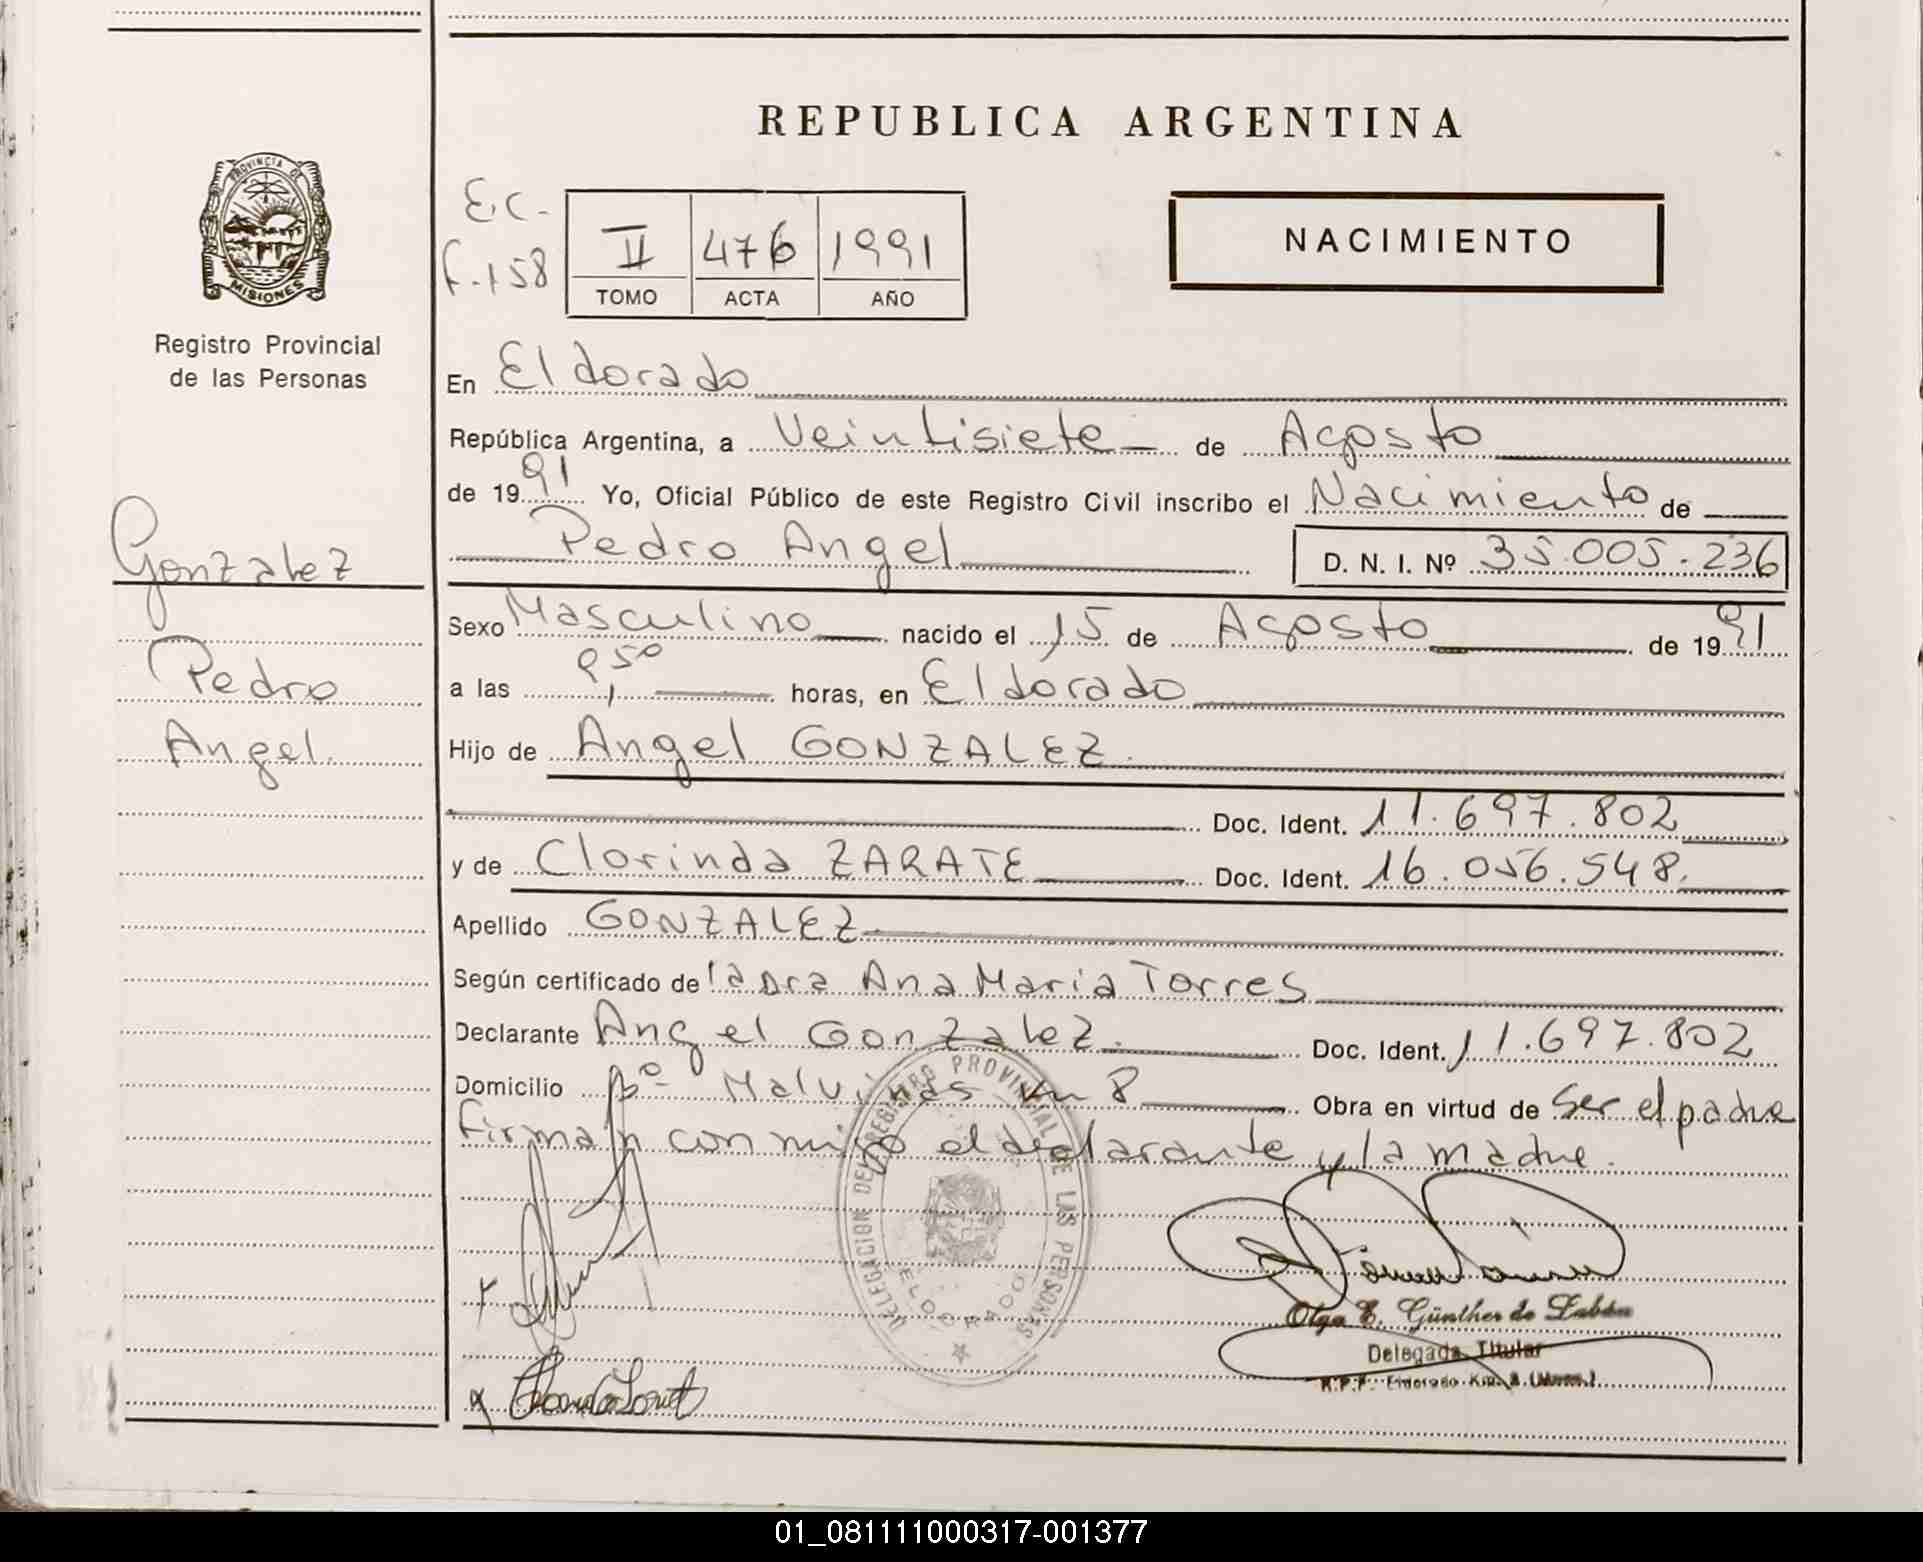 REPUBLICA ARGENTINA
PROVINCIA DE
MISIONES
Registro Provincial
de las Personas
E.C.
F.158
II 476 1991
TOMO ACTA AÑO
NACIMIENTO
En Eldorado
República Argentina, a Veintisiete de Agosto
de 1991 Yo, Oficial Público de este Registro Civil inscribo el Nacimiento de
Pedro Angel D. N. I. Nº 35.005.236
Gonzalez
Pedro
Angel.
Sexo Masculino nacido el 15 de Agosto de 1991
a las 9,50 horas, en Eldorado
Hijo de Angel GONZALEZ.
Doc. Ident. 11.697.802
y de Clorinda ZARATE Doc. Ident. 16.056.548.
Apellido GONZALEZ
Según certificado de la Dra Ana Maria Torres
Declarante Angel Gonzalez. Doc. Ident. 11.697.802
Domicilio Bº Malvinas km 8 Obra en virtud de ser el padre
Firman conmigo el declarante y la madre.
DELEGACION DEL REGISTRO PROVINCIAL DE LAS PERSONAS
ELDORADO
Olga E. Günther de Labán
Delegada Titular
R.P.P. Eldorado Km. 8 (Mnes.)
01_081111000317-001377